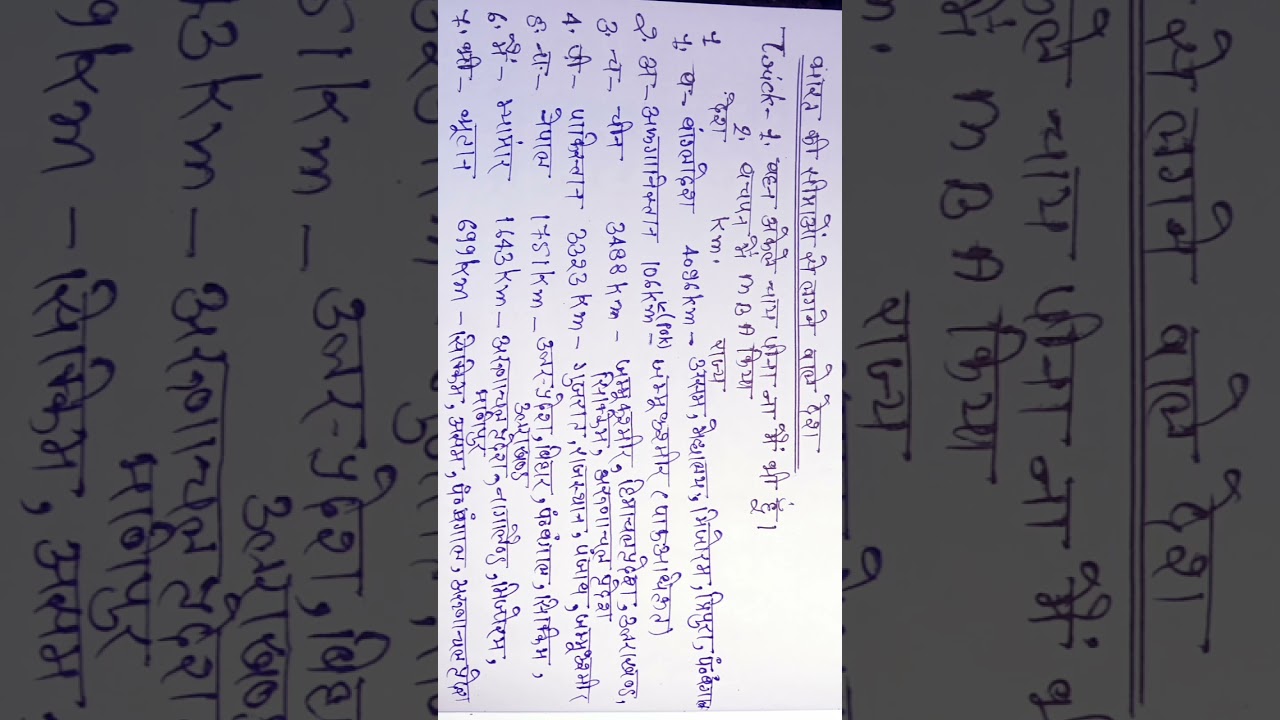 भारत की सीमाओं से लगने वाले देश
Trick - 1. बहन अकेले चाय पीना ना मैं भी हूं।
2. बचपन में MBA किया
देश km. राज्य
1. ब - बांग्लादेश 4096km → असम, मेघालय, मिजोरम, त्रिपुरा, पं०बंगाल
2. अ - अफगानिस्तान 106km - (Pok) जम्मू कश्मीर (पाक अधिकृत)
3. च - चीन 3488 km - जम्मू कश्मीर, हिमाचल प्रदेश, उत्तराखण्ड,
सिक्किम, अरुणाचल प्रदेश
4. पी - पाकिस्तान 3323 km - गुजरात, राजस्थान, पंजाब, जम्मू कश्मीर
5. ना - नेपाल 1751km - उत्तर प्रदेश, बिहार, पं०बंगाल, सिक्किम,
उत्तराखण्ड
6. मैं - म्यांमार 1643km - अरुणाचल प्रदेश, नागालैण्ड, मिजोरम,
मणिपुर
7. भी - भूटान 699km - सिक्किम, असम, पं०बंगाल, अरुणाचल प्रदेश